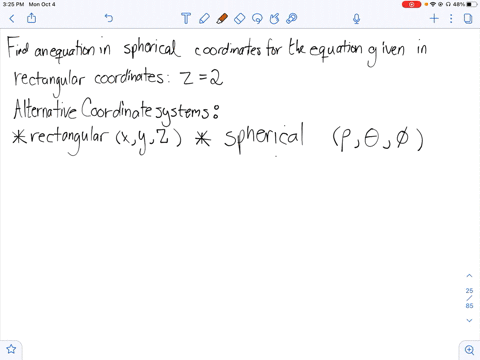 3:25 PM Mon Oct 4
48%
Find an equation in spherical coordinates for the equation given in
rectangular coordinates: Z = 2
Alternative Coordinate systems:
* rectangular (x, y, Z) * spherical (ρ, θ, ϕ)
25
/
85